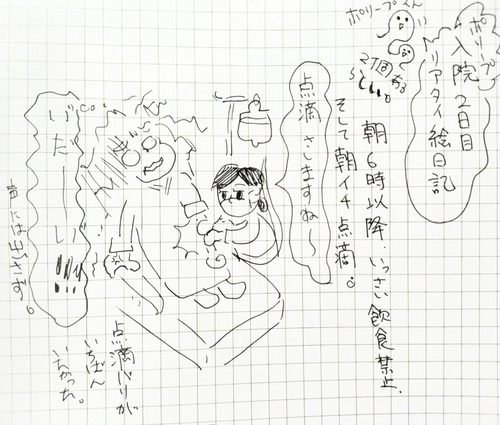 ポリープ
入院2日目
リアタイ絵日記
ポリープくん
2個ある
らしい。
朝6時以降、いっさい飲食禁止.
そして朝イチ点滴。
点滴さしますね〜
い゛だ い゛
声には出さず。
点滴バリが
いちばん
いたかった。